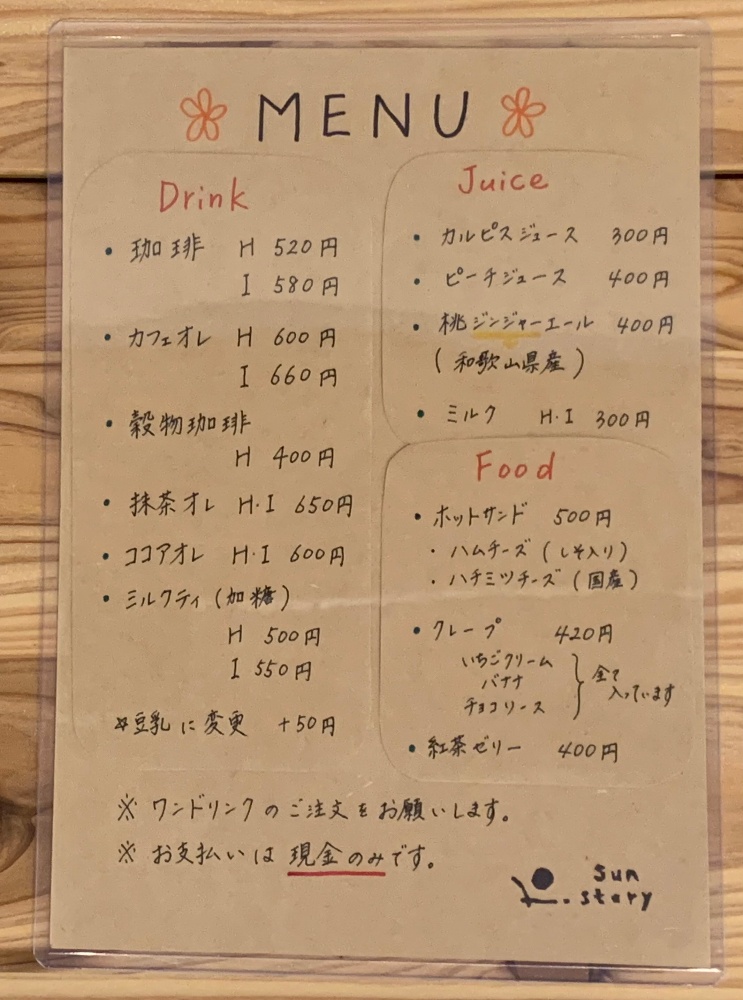 MENU
Drink
・珈琲 H 520円
I 580円
・カフェオレ H 600円
I 660円
・穀物珈琲
H 400円
・抹茶オレ H·I 650円
・ココアオレ H·I 600円
・ミルクティ(加糖)
H 500円
I 550円
☆豆乳に変更 +50円
Juice
・カルピスジュース 300円
・ピーチジュース 400円
・桃ジンジャーエール 400円
(和歌山県産)
・ミルク H·I 300円
Food
・ホットサンド 500円
・ハムチーズ(しそ入り)
・ハチミツチーズ(国産)
・クレープ 420円
いちごクリーム
バナナ
チョコソース
全て
入っています
・紅茶ゼリー 400円
※ワンドリンクのご注文をお願いします。
※お支払いは現金のみです。
sun
story